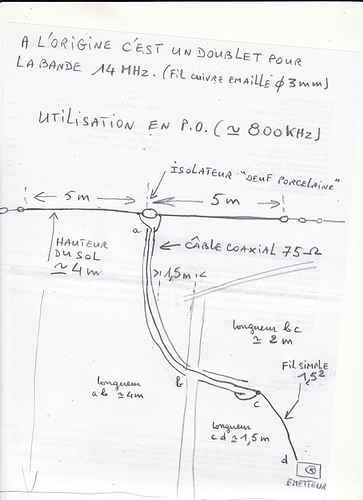 A L'ORIGINE C'EST UN DOUBLET POUR
LA BANDE 14 MHz. (FIL CUIVRE EMAILLÉ φ 3mm)
UTILISATION EN P.O. (≃ 800KHz)
ISOLATEUR "OEUF PORCELAINE"
5m
5m
a
CÂBLE COAXIAL 75Ω
HAUTEUR
DU SOL
≃ 4m
1,5m
longueur bc
≃ 2m
FIL SIMPLE
1,5²
longueur
ab ≃ 4m
b
c
longueur
cd ≃ 1,5m
d
EMETTEUR